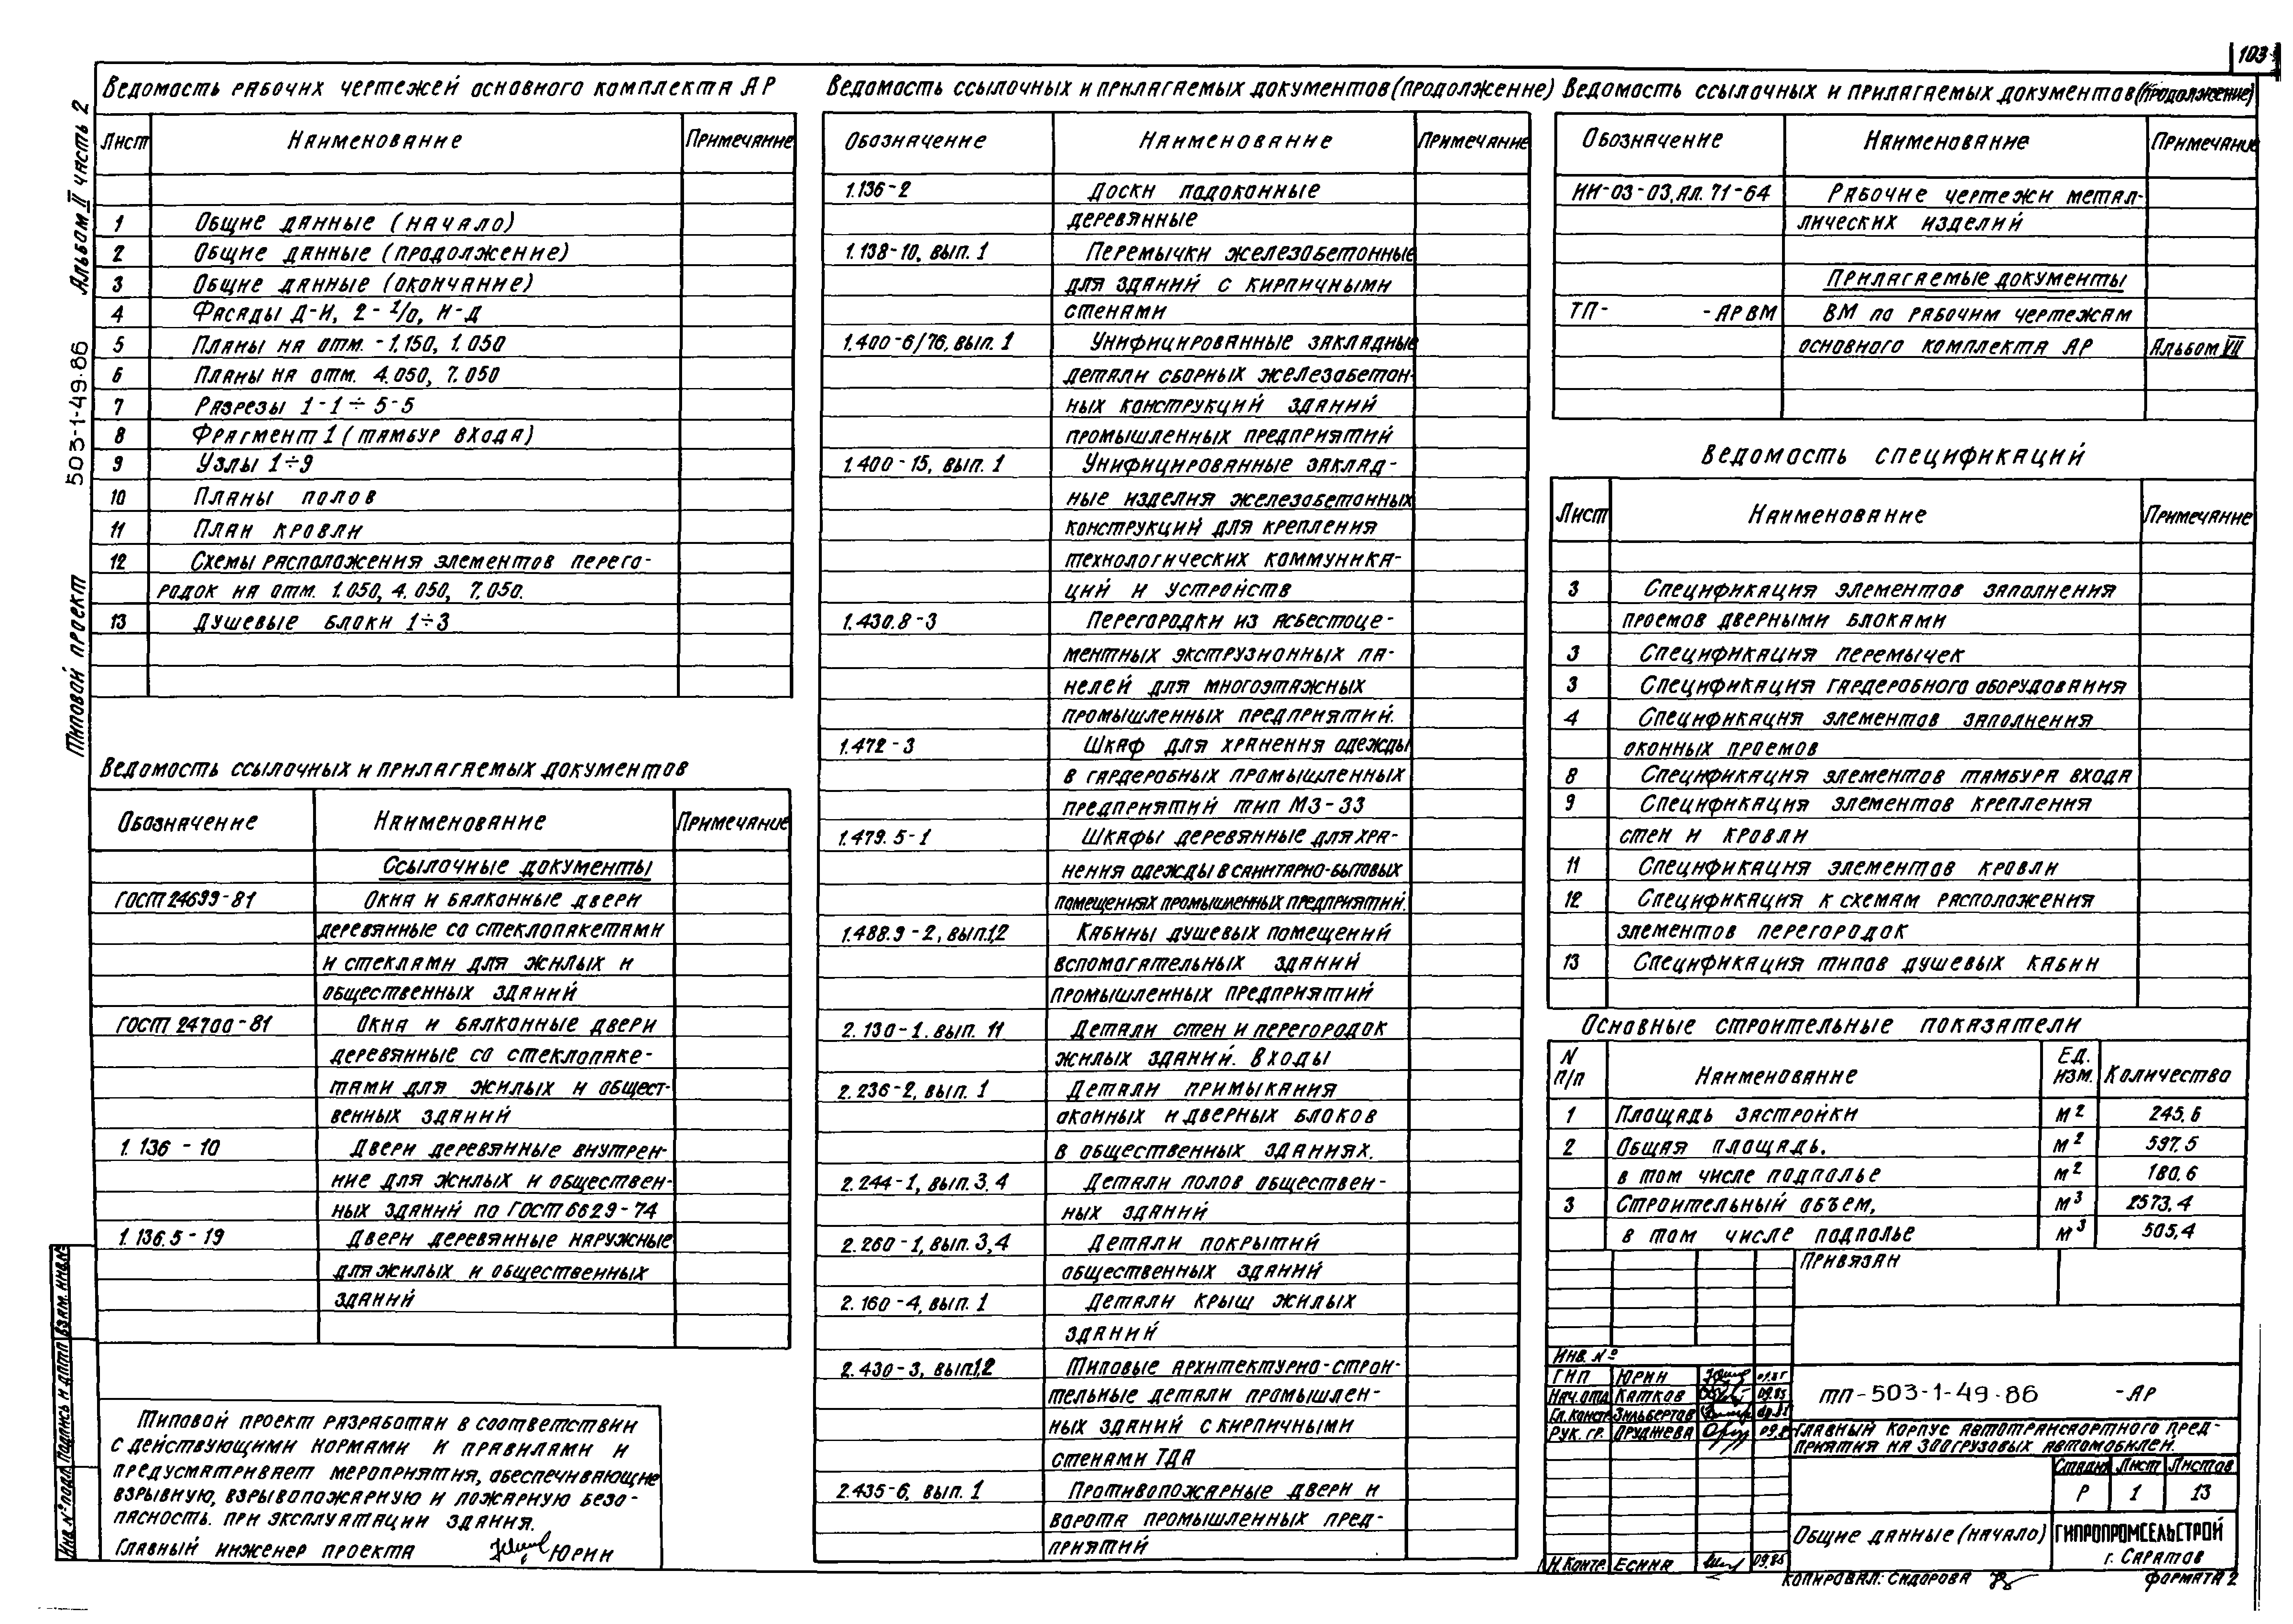 103
Альбом II часть 2
503-1-49.86
Типовой проект
Ведомость рабочих чертежей основного комплекта АР
Лист Наименование Примечание
1 Общие данные (начало)
2 Общие данные (продолжение)
3 Общие данные (окончание)
4 Фасады Д-И, 2-1/0, И-Д
5 Планы на отм. -1.150, 1.050
6 Планы на отм. 4.050, 7.050
7 Разрезы 1-1÷5-5
8 Фрагмент 1 (тамбур входа)
9 Узлы 1÷9
10 Планы полов
11 План кровли
12 Схемы расположения элементов перего-
родок на отм. 1.050, 4.050, 7.050.
13 Душевые блоки 1÷3
Ведомость ссылочных и прилагаемых документов
Обозначение Наименование Примечание
Ссылочные документы
ГОСТ 24699-81 Окна и балконные двери
деревянные со стеклопакетами
и стеклами для жилых и
общественных зданий
ГОСТ 24700-81 Окна и балконные двери
деревянные со стеклопаке-
тами для жилых и общест-
венных зданий
1.136-10 Двери деревянные внутрен-
ние для жилых и обществен-
ных зданий по ГОСТ 6629-74
1.136.5-19 Двери деревянные наружные
для жилых и общественных
зданий
Типовой проект разработан в соответствии
с действующими нормами и правилами и
предусматривает мероприятия, обеспечивающие
взрывную, взрывопожарную и пожарную безо-
пасность при эксплуатации здания.
Главный инженер проекта Юрин
Инв. № подл. Подпись и дата Взам. инв. №
Ведомость ссылочных и прилагаемых документов (продолжение)
Обозначение Наименование Примечание
1.136-2 Доски подоконные
деревянные
1.138-10, вып. 1 Перемычки железобетонные
для зданий с кирпичными
стенами
1.400-6/76, вып. 1 Унифицированные закладные
детали сборных железобетон-
ных конструкций зданий
промышленных предприятий
1.400-15, вып. 1 Унифицированные заклад-
ные изделия железобетонных
конструкций для крепления
технологических коммуника-
ций и устройств
1.430.8-3 Перегородки из асбестоце-
ментных экструзионных па-
нелей для многоэтажных
промышленных предприятий.
1.472-3 Шкаф для хранения одежды
в гардеробных промышленных
предприятий тип МЗ-33
1.479.5-1 Шкафы деревянные для хра-
нения одежды в санитарно-бытовых
помещениях промышленных предприятий.
1.488.9-2, вып.1,2 Кабины душевых помещений
вспомагательных зданий
промышленных предприятий
2.130-1. вып. 11 Детали стен и перегородок
жилых зданий. Входы
2.236-2, вып. 1 Детали примыкания
оконных и дверных блоков
в общественных зданиях.
2.244-1, вып. 3,4 Детали полов обществен-
ных зданий
2.260-1, вып. 3,4 Детали покрытий
общественных зданий
2.160-4, вып. 1 Детали крыш жилых
зданий
2.430-3, вып.1,2 Типовые архитектурно-строи-
тельные детали промышлен-
ных зданий с кирпичными
стенами ТДА
2.435-6, вып. 1 Противопожарные двери и
ворота промышленных пред-
приятий
Ведомость ссылочных и прилагаемых документов (продолжение)
Обозначение Наименование Примечание
ИИ-03-03, Ал. 71-64 Рабочие чертежи метал-
лических изделий
Прилагаемые документы
ТП- -АР ВМ ВМ по рабочим чертежам
основного комплекта АР Альбом VII
Ведомость спецификаций
Лист Наименование Примечание
3 Спецификация элементов заполнения
проемов дверными блоками
3 Спецификация перемычек
3 Спецификация гардеробного оборудования
4 Спецификация элементов заполнения
оконных проемов
8 Спецификация элементов тамбура входа
9 Спецификация элементов крепления
стен и кровли
11 Спецификация элементов кровли
12 Спецификация к схемам расположения
элементов перегородок
13 Спецификация типов душевых кабин
Основные строительные показатели
N п/п Наименование Ед. изм. Количество
1 Площадь застройки м2 245.6
2 Общая площадь, м2 597.5
в том числе подполье м2 180.6
3 Строительный объем, м3 2573.4
в том числе подполье м3 505.4
Привязан
Инв. №
ГИП Юрин
Нач. отд. Катков 09.85
Гл. констр. Зильбертов
Рук. гр. Пруджева
Н. Контр. Есина 09.85
тп-503-1-49.86 -АР
Главный корпус автотранспортного пред-
приятия на 300 грузовых автомобилей.
Стадия Лист Листов
Р 1 13
Общие данные (начало)
ГИПРОПРОМСЕЛЬСТРОЙ
г. Саратов
Копировал: Сидорова Формат А2